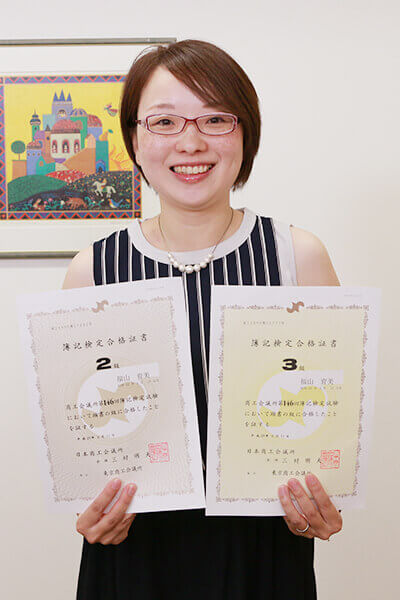 簿記検定合格証書
2級
福山 育美
商工会議所第146回簿記検定試験
において頭書の級に合格したこと
を証する
日本商工会議所
会頭 三村明夫
東京商工会議所
簿記検定合格証書
3級
福山 育美
商工会議所第146回簿記検定試験
において頭書の級に合格したこと
を証する
日本商工会議所
会頭 三村明夫
東京商工会議所